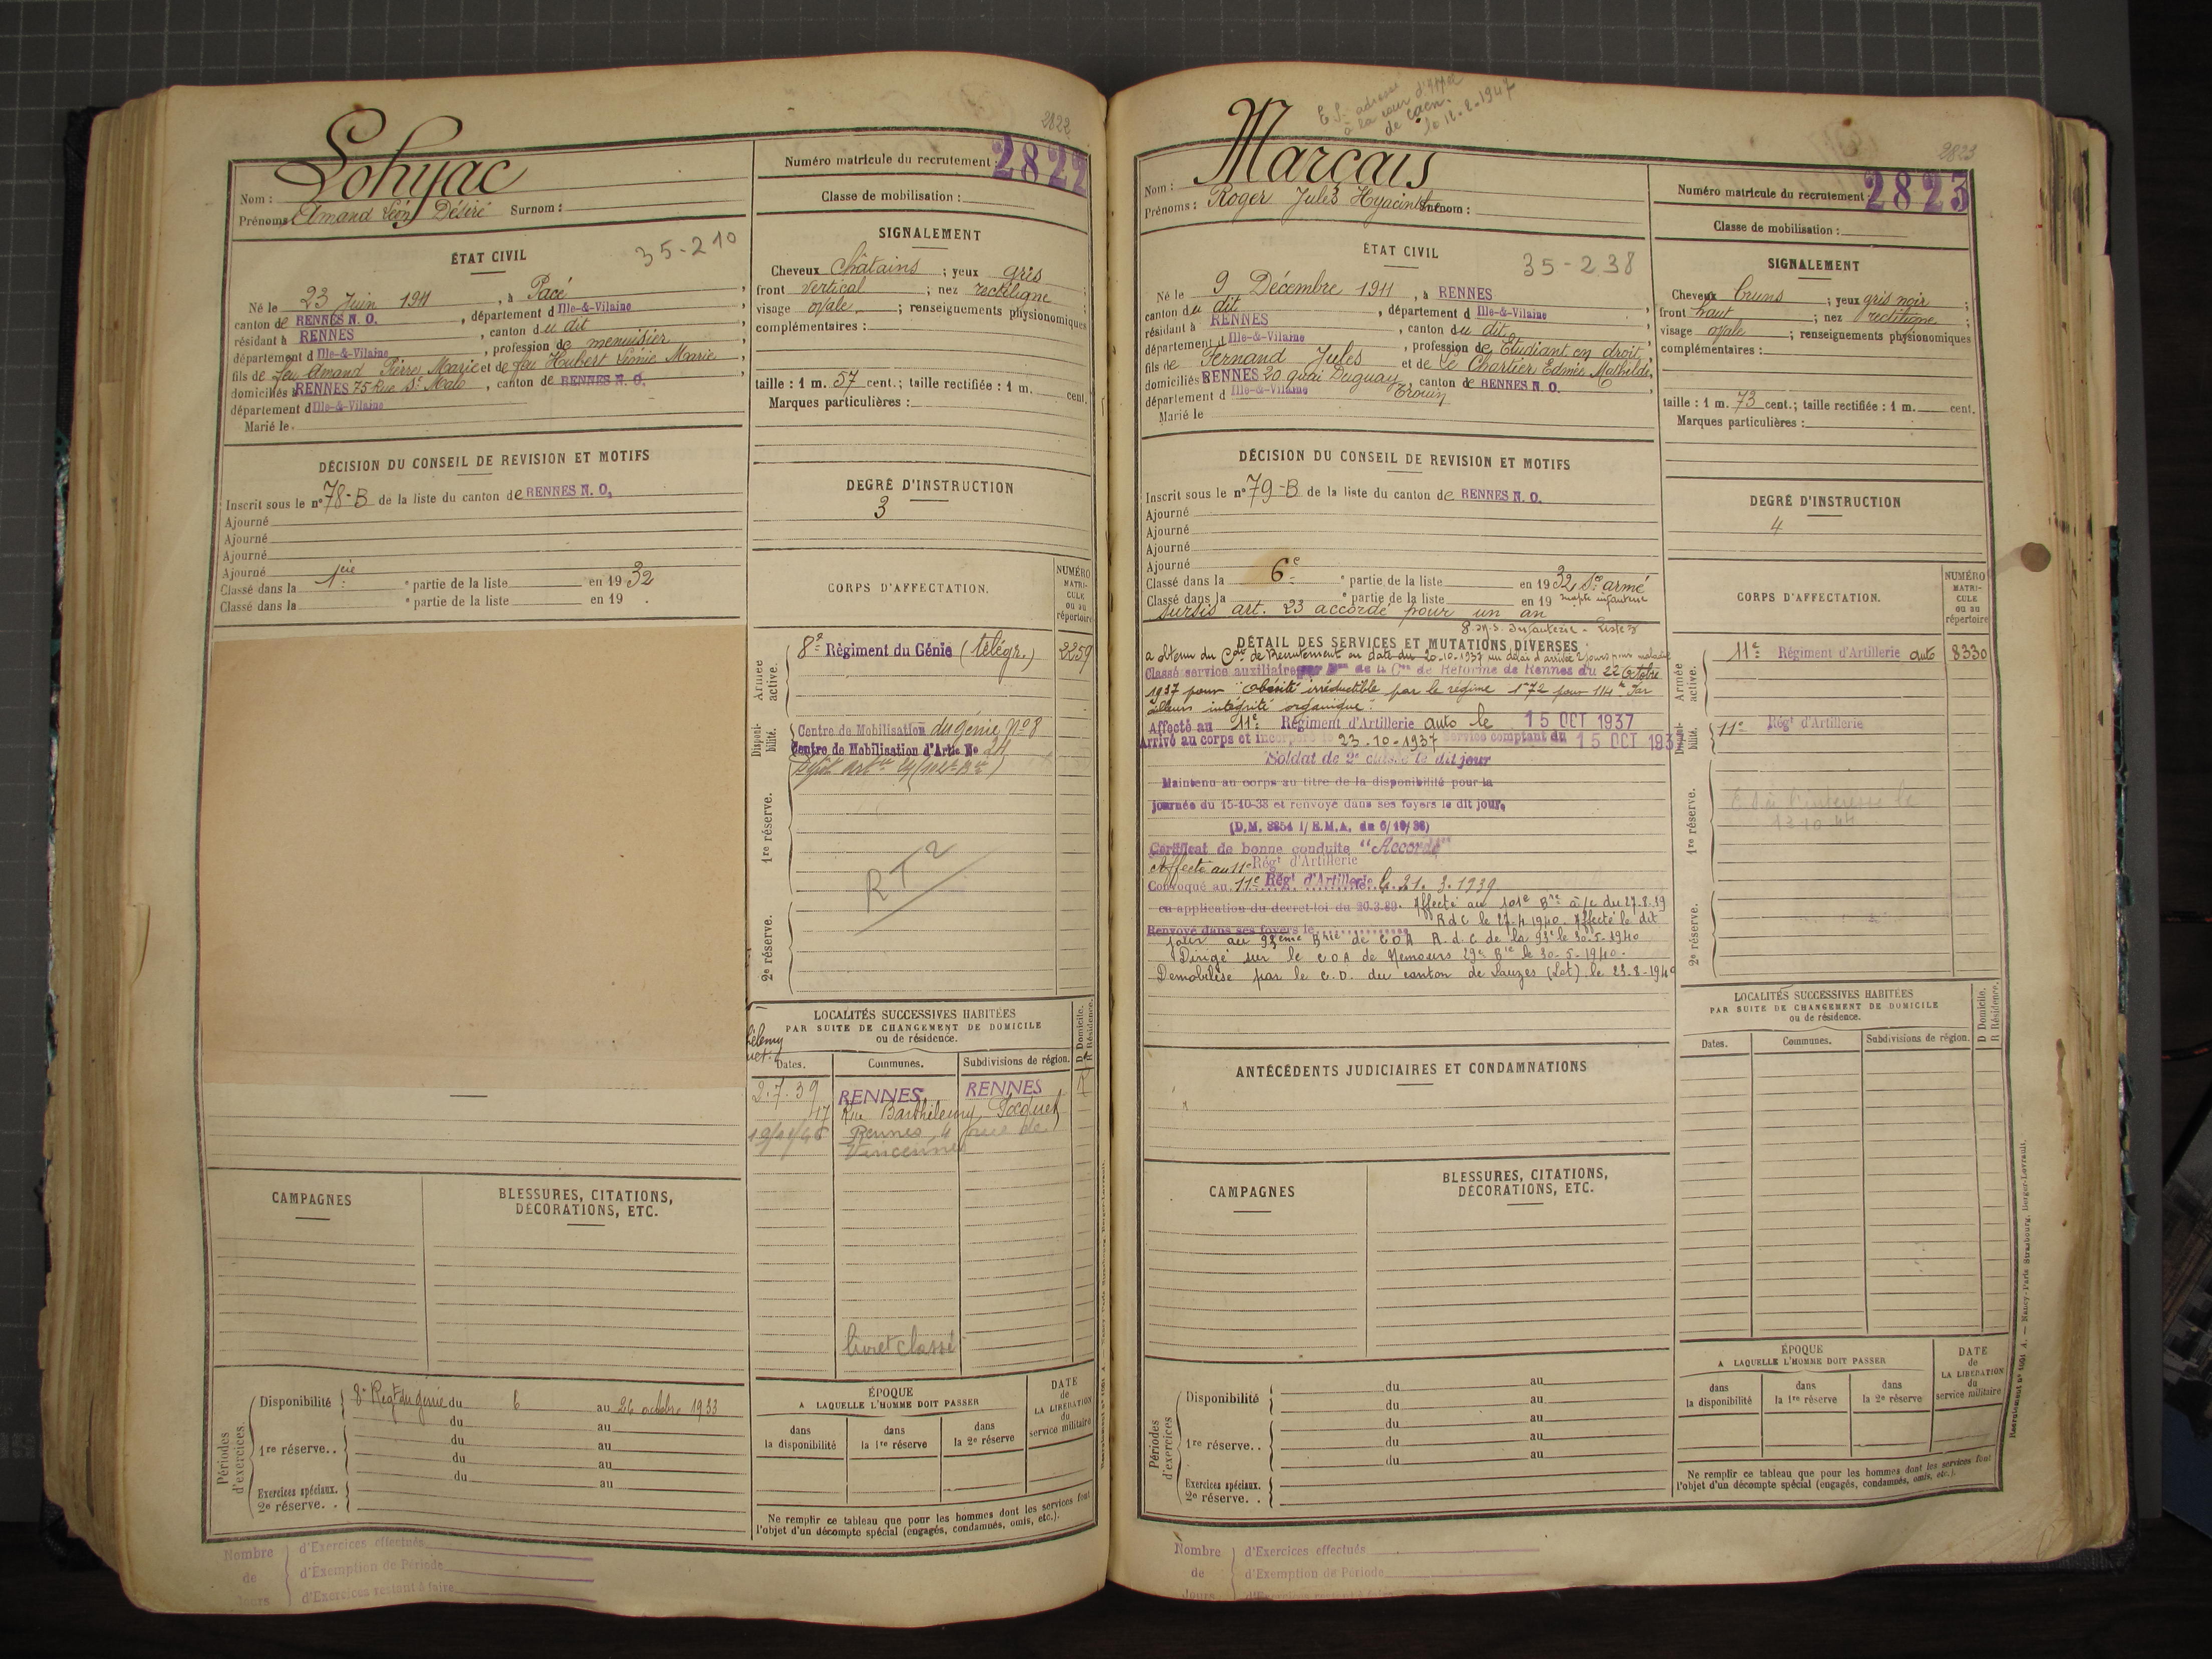 2822
Lohyac
Nom :
Numéro matricule du recrutement : 2822
Prénoms : Amand Léon Désiré Surnom :
Classe de mobilisation :
ÉTAT CIVIL 35-210
Né le 23 Juin 1911, à Pacé,
canton de RENNES N. O., département d Ille-&-Vilaine
résidant à RENNES, canton du dit,
département d Ille-&-Vilaine, profession de menuisier
fils de feu Amand Pierre Marie et de feu Hubert Léonie Marie,
domiciliés à RENNES 75 Rue St Malo, canton de RENNES N. O.
département d Ille-&-Vilaine
Marié le
SIGNALEMENT
Cheveux Châtains ; yeux gris
front vertical ; nez rectiligne ;
visage ovale ; renseignements physionomiques
complémentaires :
taille : 1 m. 57 cent.; taille rectifiée : 1 m. cent.
Marques particulières :
DÉCISION DU CONSEIL DE REVISION ET MOTIFS
Inscrit sous le n° 78-B de la liste du canton de RENNES N. O.
Ajourné
Ajourné
Ajourné
Ajourné
Classé dans la 1ère partie de la liste en 1932
Classé dans la partie de la liste en 19 .
DEGRÉ D'INSTRUCTION
3
CORPS D'AFFECTATION.
NUMÉRO MATRI-CULE ou au répertoire
Armée active.
8e Régiment du Génie (télégr.) 2259
Disponi-bilité.
Centre de Mobilisation du génie N° 8
Centre de Mobilisation d'Artie No 24
1re réserve.
RT2
2e réserve.
LOCALITÉS SUCCESSIVES HABITÉES
PAR SUITE DE CHANGEMENT DE DOMICILE
ou de résidence.
D Domicile.
R Résidence.
Dates. Communes. Subdivisions de région.
2.7.39 RENNES RENNES R
17 Rue Barthélemy Pocquet
Rennes, 4 rue de
Vincennes
livret classé
CAMPAGNES
BLESSURES, CITATIONS,
DÉCORATIONS, ETC.
Périodes d'exercices
Disponibilité 8e Regt du génie du 6 au 26 octobre 1933
du au
1re réserve.. du au
du au
du au
Exercices spéciaux.
2e réserve. .
ÉPOQUE
A LAQUELLE L'HOMME DOIT PASSER
dans la disponibilité
dans la 1re réserve
dans la 2e réserve
DATE de LA LIBÉRATION du service militaire
Ne remplir ce tableau que pour les hommes dont les services font
l'objet d'un décompte spécial (engagés, condamnés, omis, etc.).
Nombre de Jours
d'Exercices effectués
d'Exemption de Période
d'Exercices restant à faire
adressé
à la cour d'Appel
de Caen.
le 12-2-1947
2823
Marçais
Nom :
Numéro matricule du recrutement : 2823
Prénoms : Roger Jules Hyacinthe Surnom :
Classe de mobilisation :
ÉTAT CIVIL 35-238
Né le 9 Décembre 1911, à RENNES
canton du dit, département d Ille-&-Vilaine
résidant à RENNES, canton du dit,
département d Ille-&-Vilaine, profession de Etudiant en droit,
fils de Fernand Jules et de Le Chartier Edmée Mathilde,
domiciliés RENNES 20 quai Duguay Trouin, canton de RENNES N. O.
département d Ille-&-Vilaine
Marié le
SIGNALEMENT
Cheveux bruns ; yeux gris noir ;
front haut ; nez rectiligne ;
visage ovale ; renseignements physionomiques
complémentaires :
taille : 1 m. 73 cent.; taille rectifiée : 1 m. cent.
Marques particulières :
DÉCISION DU CONSEIL DE REVISION ET MOTIFS
Inscrit sous le n° 79-B de la liste du canton de RENNES N. O.
Ajourné
Ajourné
Ajourné
Ajourné
Classé dans la 6e partie de la liste en 1932 Sce armé
Classé dans la partie de la liste en 19 inapte infanterie
sursis art. 23 accordé pour un an
DEGRÉ D'INSTRUCTION
4
DÉTAIL DES SERVICES ET MUTATIONS DIVERSES
a obtenu du Cdt de Recrutement en date du 20-10-1937 un délai d'arrivée 2 jours pour maladie
Classé service auxiliaire par Don de la Con de Réforme de Rennes du 22 Octobre
1937 pour "obésité irréductible par le régime 1m72 pour 114 k Par
ailleurs intégrité organique".
Affecté au 11e Régiment d'Artillerie auto le 15 OCT 1937
Arrivé au corps et incorporé le 23.10-1937 Service comptant du 15 OCT 1937
Soldat de 2e classe le dit jour
Maintenu au corps au titre de la disponibilité pour la
journée du 15-10-38 et renvoyé dans ses foyers le dit jour.
(D.M. 8854 I/E.M.A. du 6/10/38)
Certificat de bonne conduite "Accordé"
Affecté au 11e Régt d'Artillerie
Convoqué au 11e Régt d'Artillerie le 21.3.1939
en application du decret-loi du 20.3.39. Affecté au 101e Bie à/c du 27.8.39
RdC le 27.4.1940. Affecté le dit
Renvoyé dans ses foyers le
jour au 93ème Brie de COA R.d.C de la 93e le 30.5.1940
Dirigé sur le COA de Nemours 29e Bie le 30-5-1940.
Démobilisé par le C.D. du canton de Lauzes (Lot) le 23.8-1940
CORPS D'AFFECTATION.
NUMÉRO MATRI-CULE ou au répertoire
Armée active.
11e Régiment d'Artillerie auto 8330
Disponi-bilité.
11e Régt d'Artillerie
1re réserve.
2e réserve.
ANTÉCÉDENTS JUDICIAIRES ET CONDAMNATIONS
LOCALITÉS SUCCESSIVES HABITÉES
PAR SUITE DE CHANGEMENT DE DOMICILE
ou de résidence.
D Domicile.
R Résidence.
Dates. Communes. Subdivisions de région.
CAMPAGNES
BLESSURES, CITATIONS,
DÉCORATIONS, ETC.
Périodes d'exercices
Disponibilité du au
du au
du au
1re réserve.. du au
du au
Exercices spéciaux.
2e réserve. .
ÉPOQUE
A LAQUELLE L'HOMME DOIT PASSER
dans la disponibilité
dans la 1re réserve
dans la 2e réserve
DATE de LA LIBÉRATION du service militaire
Ne remplir ce tableau que pour les hommes dont les services font
l'objet d'un décompte spécial (engagés, condamnés, omis, etc.).
Nombre de Jours
d'Exercices effectués
d'Exemption de Période
Nancy-Paris Strasbourg, Berger-Levrault.